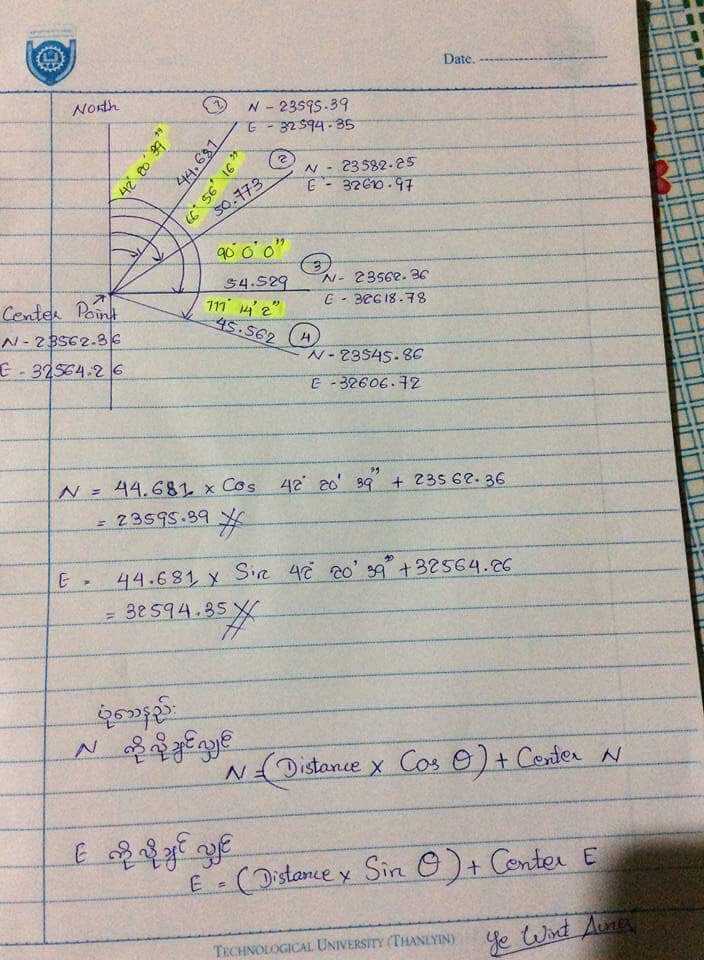 Date. ------------------
North
① N - 23595.39
E - 32594.35
42° 20' 39"
44.681
② N - 23582.25
E - 32610.97
66° 56' 16"
50.773
90° 0' 0"
54.529
③ N - 23562.36
E - 32618.78
111° 14' 2"
45.562
④ N - 23545.86
E - 32606.72
Center Point
N - 23562.36
E - 32564.26
N = 44.681 x Cos 42° 20' 39" + 23562.36
= 23595.39
E = 44.681 x Sin 42° 20' 39" + 32564.26
= 32594.35
ပုံသေနည်း
N ကိုလိုချင်လျှင်
N = (Distance x Cos θ) + Center N
E ကိုလိုချင်လျှင်
E = (Distance x Sin θ) + Center E
TECHNOLOGICAL UNIVERSITY (THANLYIN)
Ye Wint